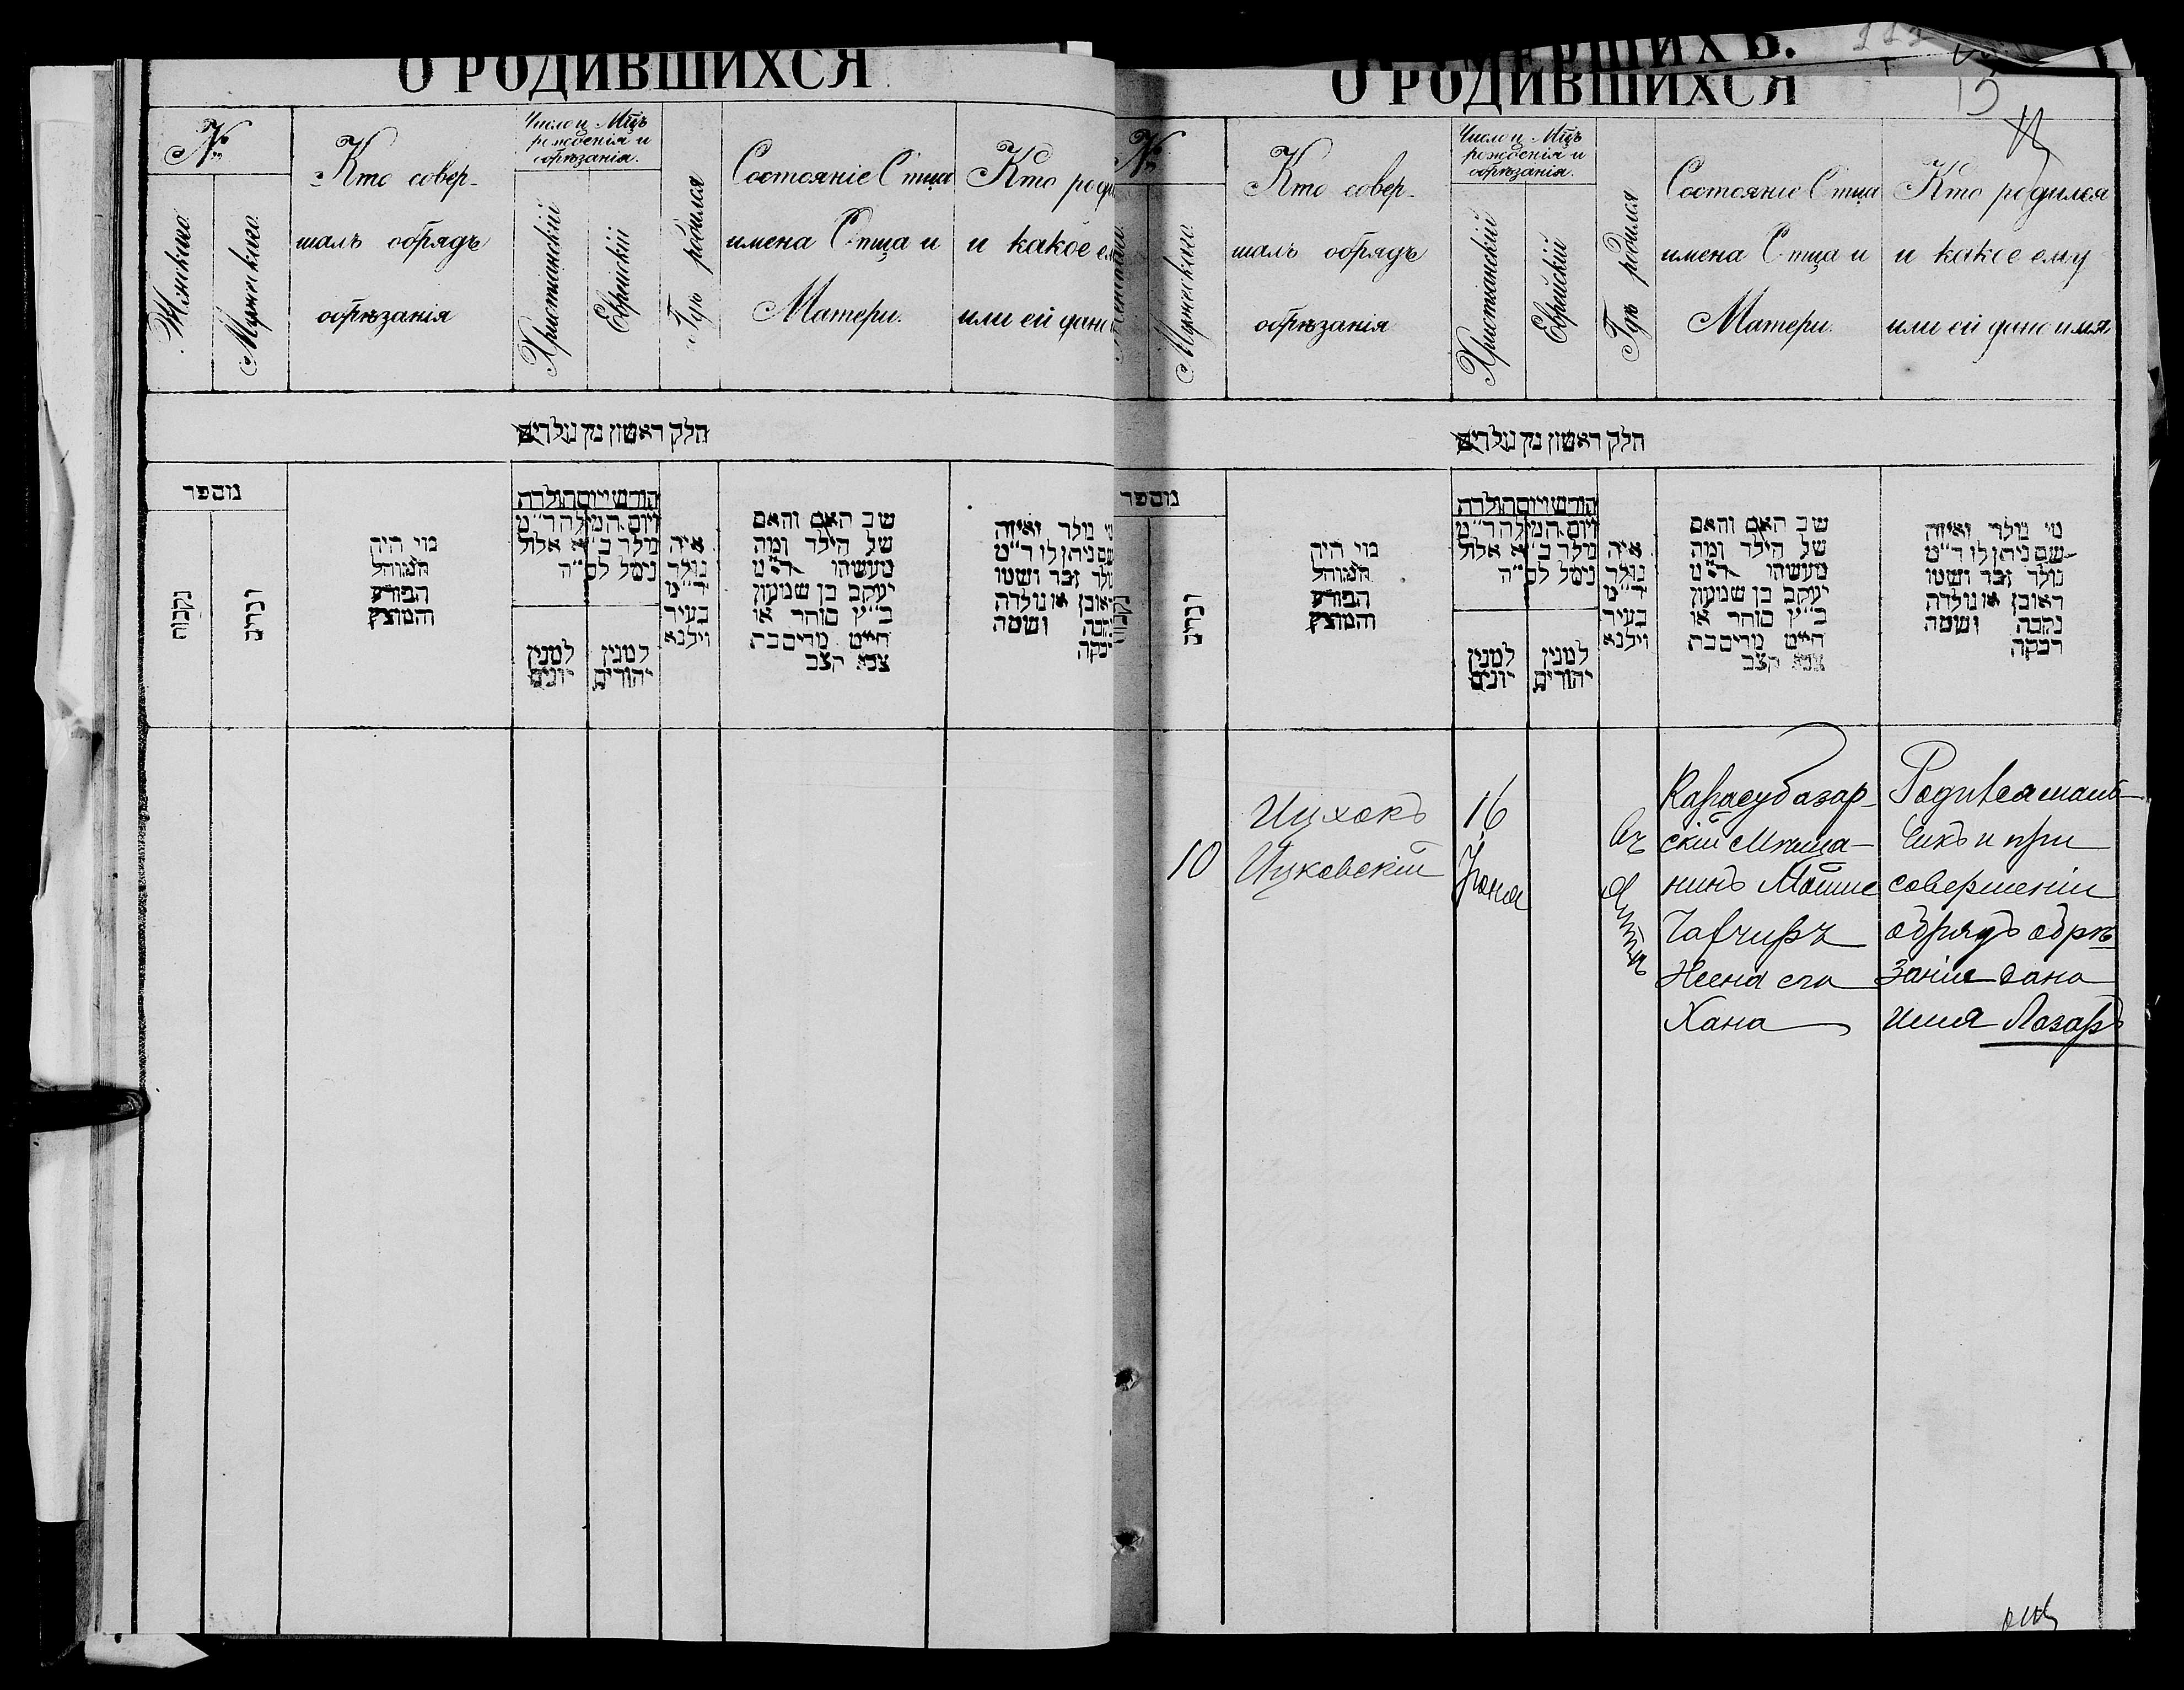 О РОДИВШИХСЯ
№
Женскаго
Мужескаго
Кто совер-
шалъ обрядъ
обрѣзанія
Число и Мцъ
рожденія и
обрѣзанія.
Христіанскій
Еврейскій
Гдѣ родился
Состояніе Отца
имена Отца и
Матери.
Кто роди
и какое ем
или ей дано
חלק ראשון מן נולדים
מספר
נקבות
זכרים
מי היה
המוהל
הפורע
והמוצץ
חודש ויום הולדת
ויום המילה ד״מ
נולד ב׳ א אלול
נימל לס״ה
למנין
יונים
למנין
יהודים
איה
נולד
ד״מ
בעיר
וילנא
שב האם והאם
של הילד ומה
מעשהו ד״מ
יעקב בן שמעון
כ״ץ סוחר או
חייט מרים בת
צבא קצב
מי נולד ואיזה
שם ניתן לו ד״מ
נולד זכר ושמו
ראובן או נולדה
נקבה ושמה
רבקה
УМЕРШИХЪ.
О РОДИВШИХСЯ
15
№
Женскаго
Мужескаго
Кто совер-
шалъ обрядъ
обрѣзанія
Число и Мцъ
рожденія и
обрѣзанія.
Христіанскій
Еврейскій
Гдѣ родился
Состояніе Отца
имена Отца и
Матери.
Кто родился
и какое ему
или ей дано имя
חלק ראשון מן נולדים
מספר
נקבות
זכרים
מי היה
המוהל
הפורע
והמוצץ
חודש ויום הולדת
ויום המילה ד״מ
נולד ב׳ א אלול
נימל לס״ה
למנין
יונים
למנין
יהודים
איה
נולד
ד״מ
בעיר
וילנא
שב האם והאם
של הילד ומה
מעשהו ד״מ
יעקב בן שמעון
כ״ץ סוחר או
חייט מרים בת
צבא קצב
מי נולד ואיזה
שם ניתן לו ד״מ
נולד זכר ושמו
ראובן או נולדה
נקבה ושמה
רבקה
10
Ицхокъ
Ицковскій
16
Іюня
въ
Ялтѣ
Карасубазар-
скій Мѣща-
нинъ Мошие
Чапчиръ
Жена его
Хана
Родился маль-
чикъ и при
совершеніи
обрядъ обрѣ
занія дано
имя Лазарь